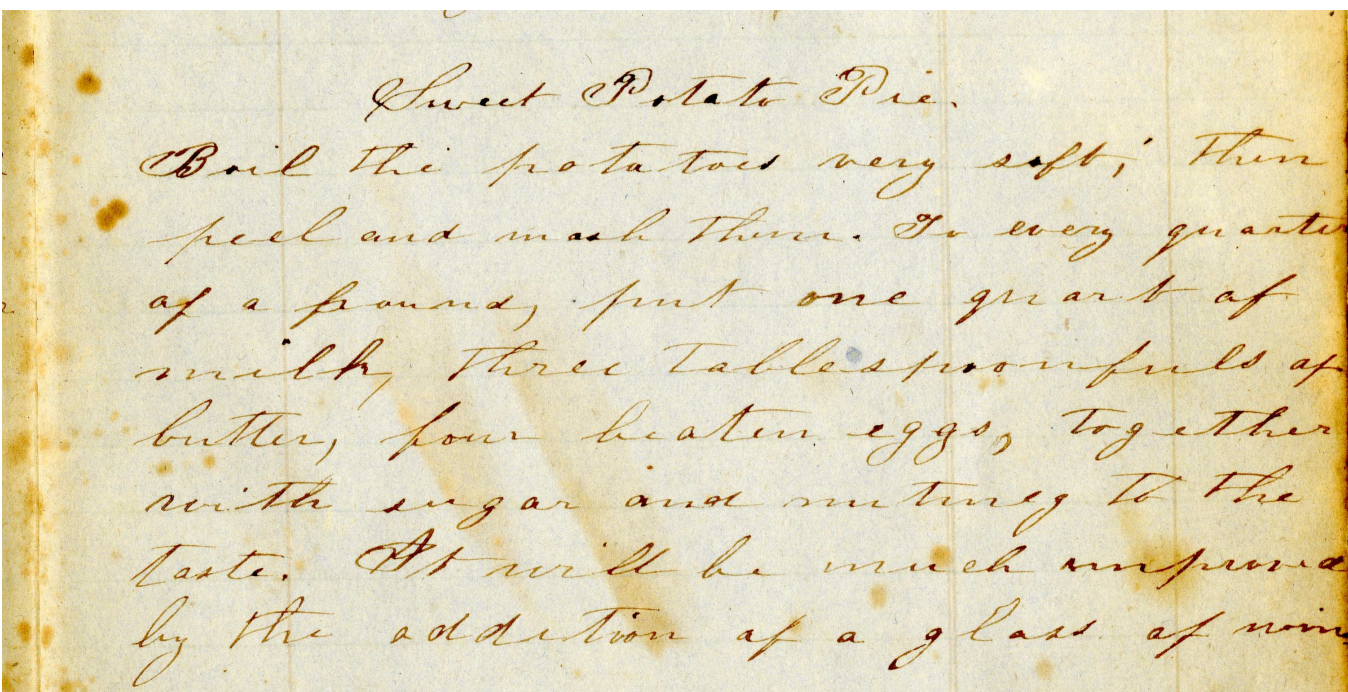 Sweet Potato Pie.
Boil the potatoes very soft; then
peel and mash them. To every quarter
of a pound, put one quart of
milk, three tablespoonfuls of
butter, four beaten eggs, together
with sugar and nutmeg to the
taste. It will be much improved
by the addition of a glass of wine